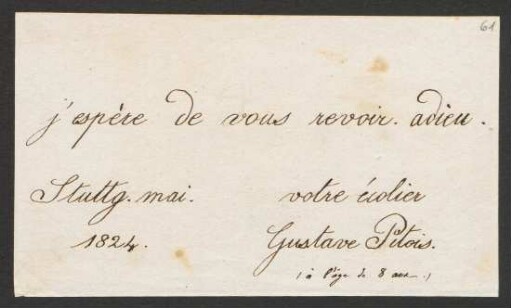 61
j'espére de vous revoir. adieu.
Stuttg. mai.
1824.
votre écolier
Gustave Pitois.
( à l'âge de 8 ans. )